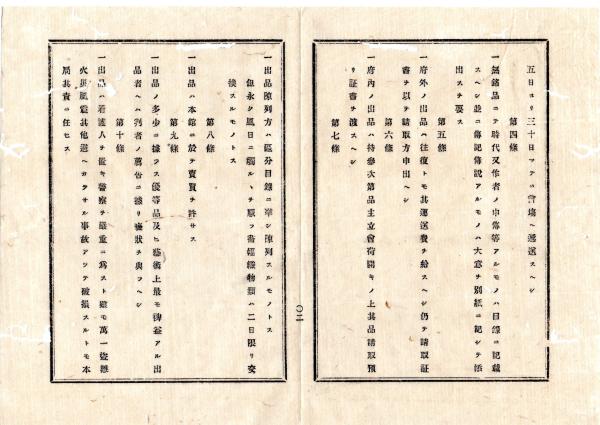 五日ヨリ三十日マテニ會塲ヘ遞送スヘシ
第四條
一無銘品ニテ時代又作者ノ申傳等アルモノハ目錄ニ記載
スヘシ並ニ傳記傳說アルモノハ大意ヲ別紙ニ記シテ添
出スヲ要ス
第五條
一府外ノ出品ハ往復トモ其運送費ヲ給スヘシ仍テ請取証
書ヲ以テ請取方申出ヘシ
第六條
一府內ノ出品ハ持參次第品主立會荷開キノ上其品請取預
リ証書ヲ渡スヘシ
第七條
一出品陳列方ハ區分目錄ニ準シ陳列スルモノトス
但永ク風日ニ觸ルヽヲ厭フ書幅織物類ハ二日限リ交
換スルモノトス
第八條
一出品ハ本館ニ於テ賣買ヲ許サス
第九條
一出品ノ多少ニ據ラス優等品及ヒ藝術上最モ裨益アル出
品者ヘハ列者ノ薦告ニ據リ褒狀ヲ與フヘシ
第十條
一出品ハ看護人ヲ置キ警察ヲ嚴重ニ爲スト雖モ萬一盜難
火災風震其他避ヘカラサル事故アツテ破損スルトモ本
局其責ニ任セス
〇二